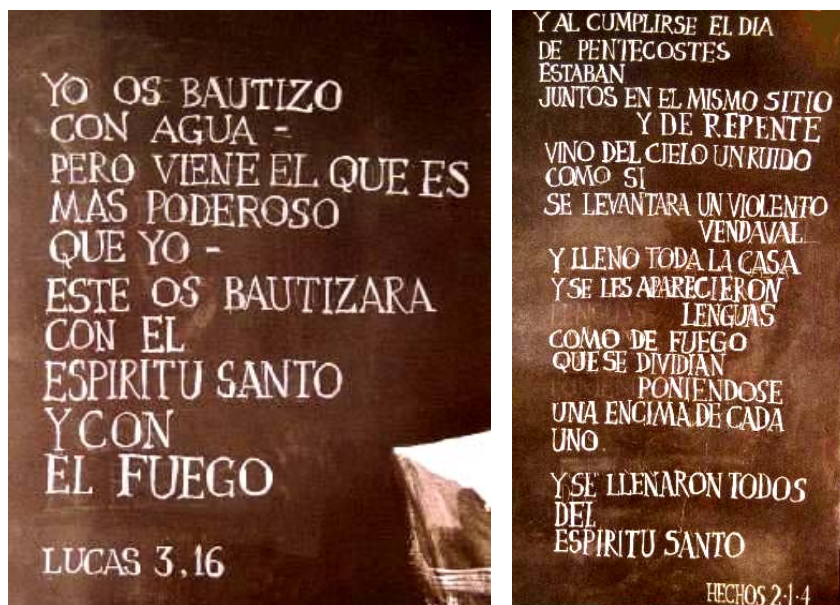 YO OS BAUTIZO
CON AGUA -
PERO VIENE EL QUE ES
MAS PODEROSO
QUE YO -
ESTE OS BAUTIZARA
CON EL
ESPIRITU SANTO
Y CON
EL FUEGO
LUCAS 3,16
Y AL CUMPLIRSE EL DIA
DE PENTECOSTES
ESTABAN
JUNTOS EN EL MISMO SITIO
Y DE REPENTE
VINO DEL CIELO UN RUIDO
COMO SI
SE LEVANTARA UN VIOLENTO
VENDAVAL
Y LLENO TODA LA CASA
Y SE LES APARECIERON
LENGUAS
COMO DE FUEGO
QUE SE DIVIDIAN
PONIENDOSE
UNA ENCIMA DE CADA
UNO
Y SE LLENARON TODOS
DEL
ESPIRITU SANTO
HECHOS 2·1·4